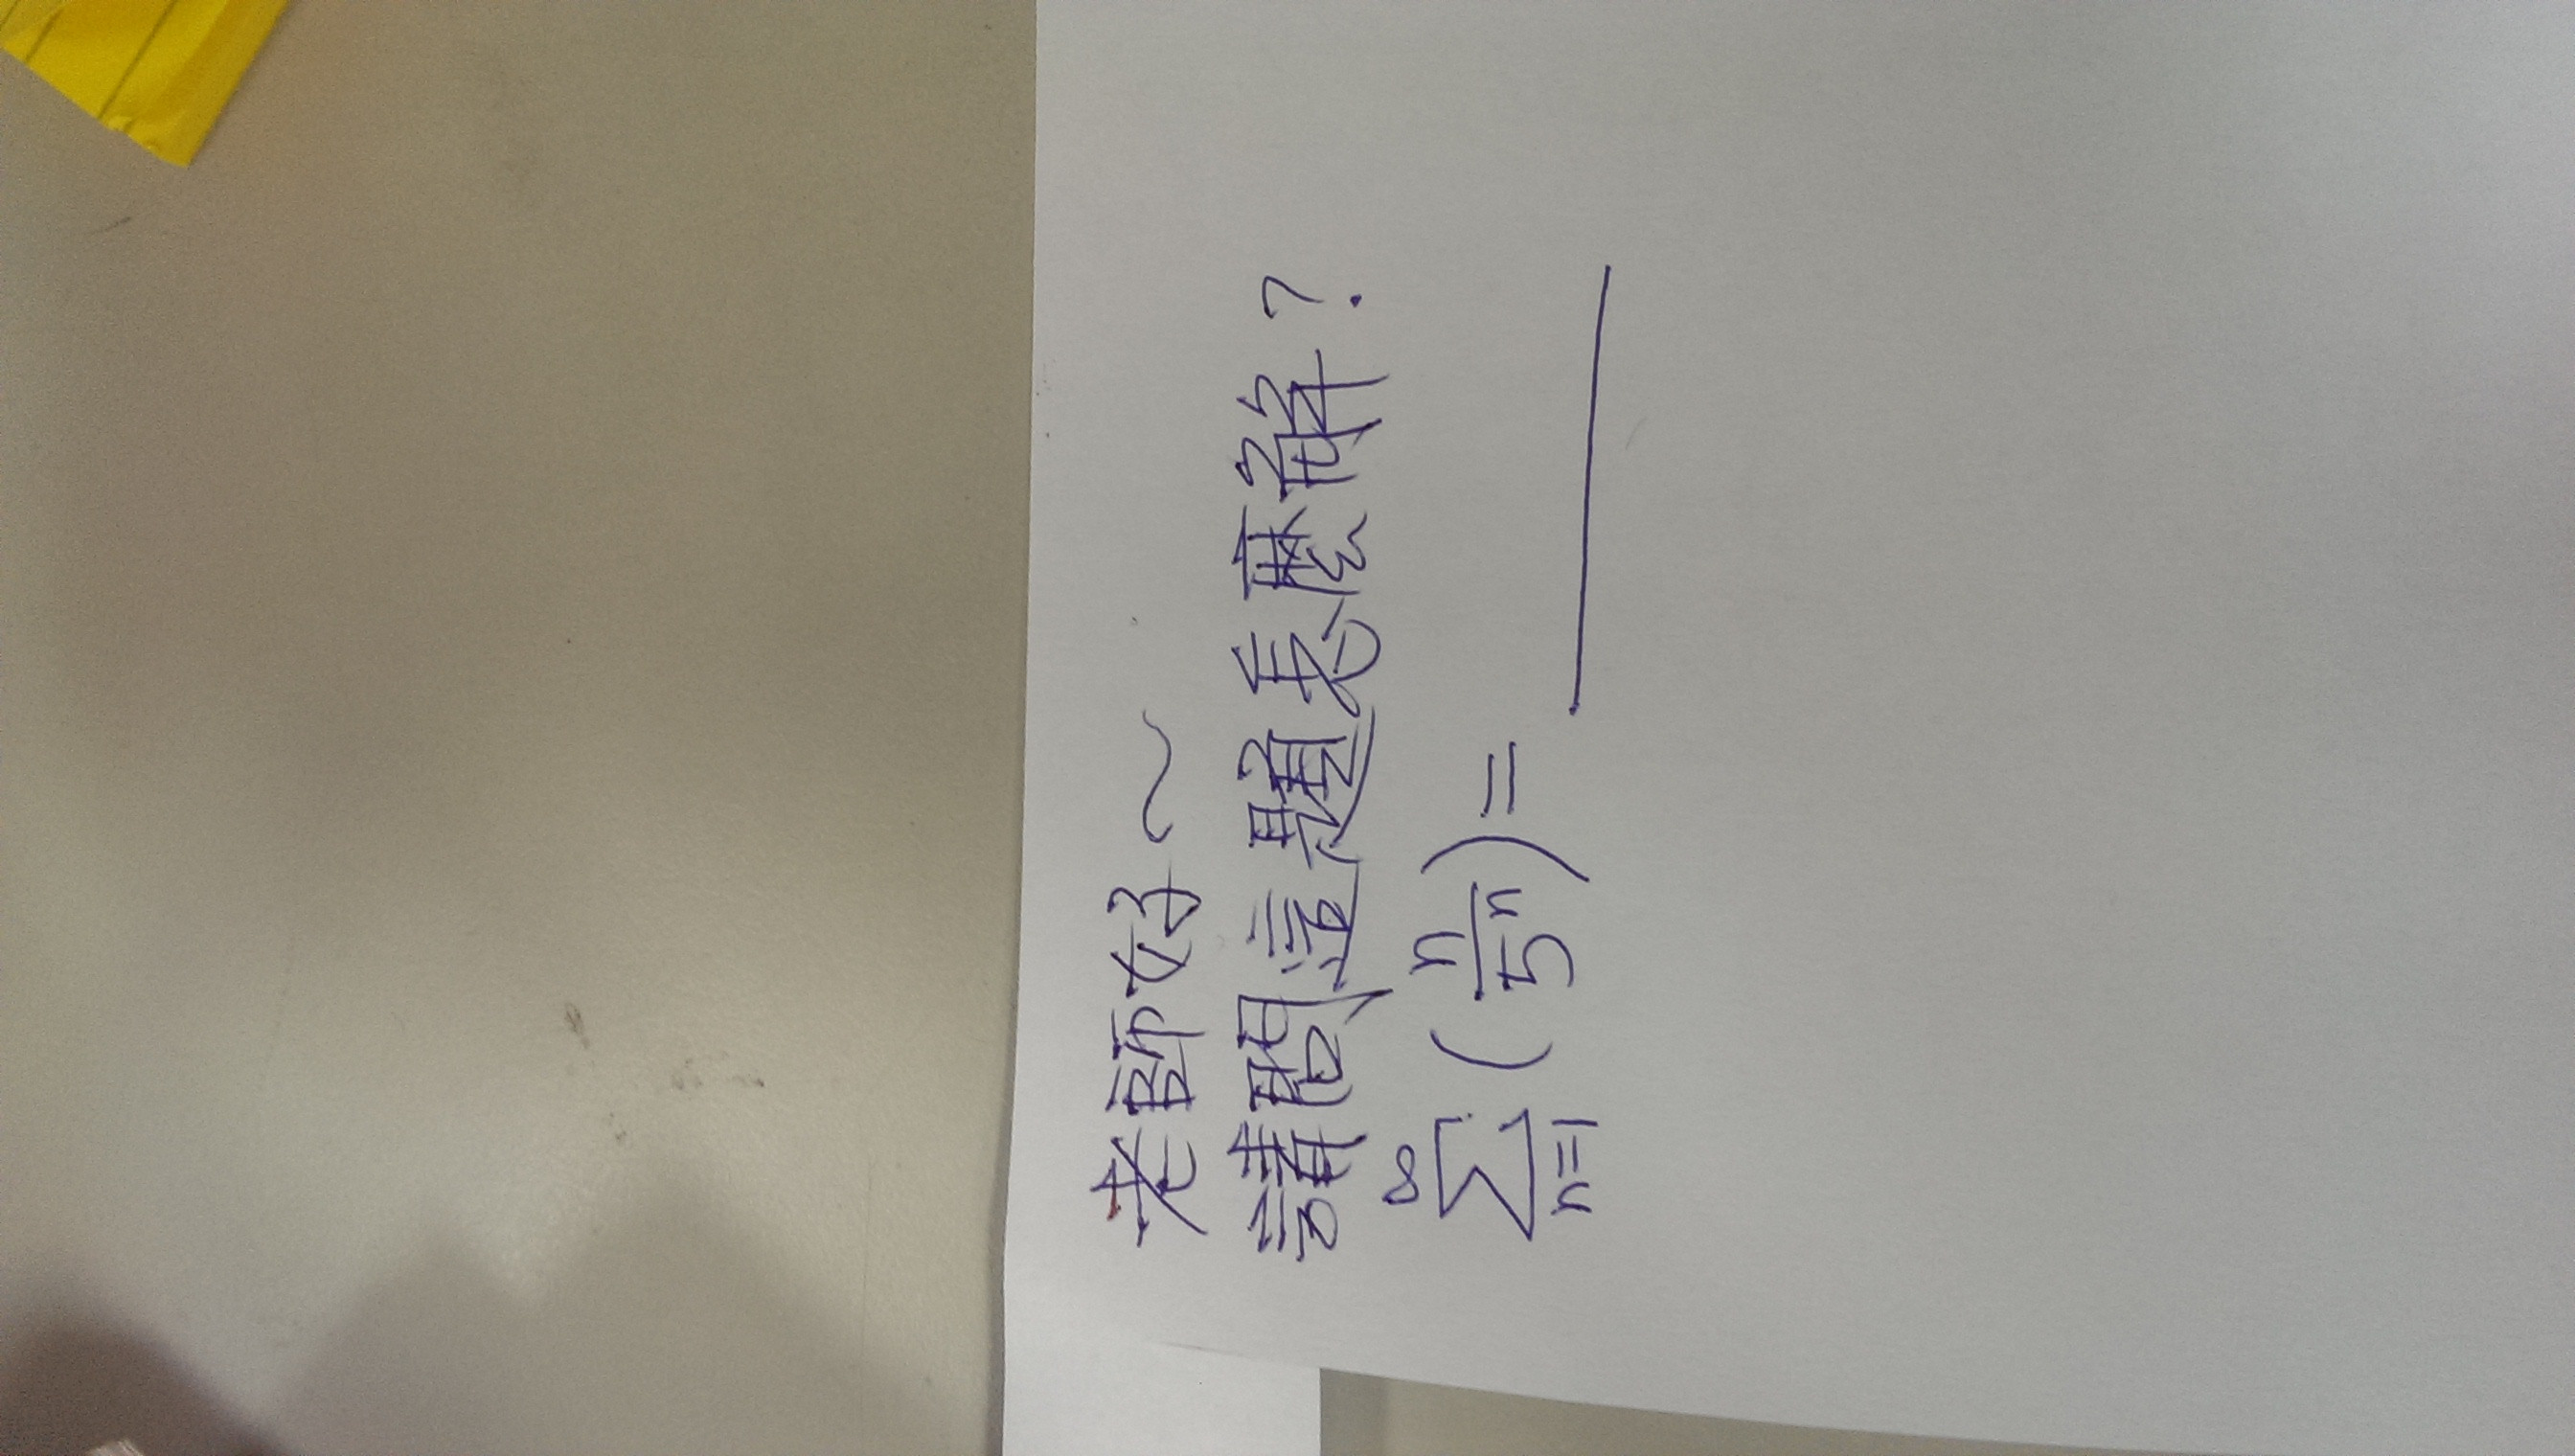 老師好～
請問這題怎麼解？
∞
∑ (n/5ⁿ) = ______
n=1